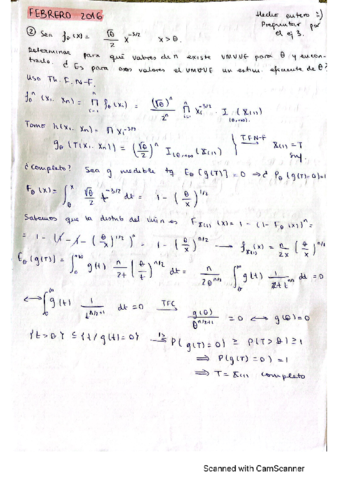 FEBRERO 2016
Hecho entero :)
Preguntar por el ej 3.
② Sea f_θ(x) = √θ/2 x^{-3/2} x > θ.
Determinar para qué valores de n existe VMVUE para θ y encontrarlo. ¿Es para esos valores el VMVUE un estim. eficiente de θ?
Uso Th. F. N-F.
f_θ^n (x_1, ..., x_n) = ∏_{i=1}^n f_θ(x_i) = (√θ)^n / 2^n ∏ x_i^{-3/2} I_{(θ,∞)} (x_{(1)})
Tomo h(x_1, ..., x_n) = ∏ x_i^{-3/2}
g_θ (T(x_1, ..., x_n)) = (√θ/2)^n I_{(θ,+∞)} (x_{(1)}) } T.F.N-F → X_{(1)} = T suf.
¿completo? Sea g medible tq E_θ[g(T)] = 0 ⇒ ¿P_θ(g(T)=0)=1
F_θ(x) = ∫_θ^x √θ/2 t^{-3/2} dt = 1 - (θ/x)^{1/2}
Sabemos que la distrib del mín es F_{X(1)}(x) = 1 - (1 - F_θ(x))^n =
= 1 - (1 - 1 + (θ/x)^{1/2})^n = 1 - (θ/x)^{n/2} → f_{X(1)}(x) = n/2x (θ/x)^{n/2}
E_θ[g(T)] = ∫_θ^{+∞} g(t) n/2t (θ/t)^{n/2} dt = 0
⟷ ∫_θ g(t) 1/t^{n/2+1} dt = 0 TFC → g(θ)/θ^{n/2+1} = 0 ⟷ g(θ) = 0
{t > θ} ⊆ {t / g(t) = 0} → P(g(T) = 0) ≥ P(T > θ) ≥ 1
⇒ P(g(T) = 0) = 1
⇒ T = X_{(1)} completo
Scanned with CamScanner